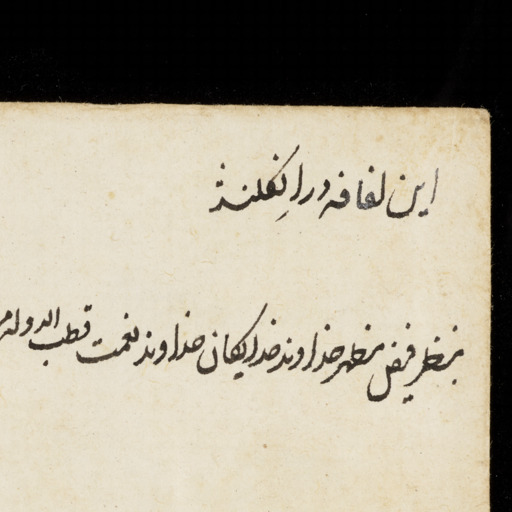 این لفافه در انگلند
بنظر فیض مظهر خداوند خدایگان خداوند نعمت قطب الدوله